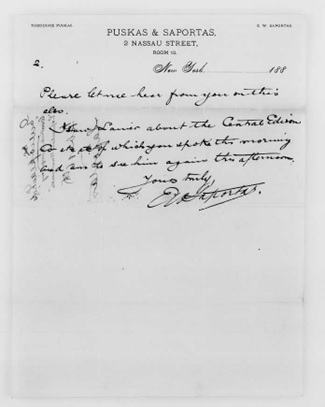 THEODORE PUSKAS. E. W. SAPORTAS.
PUSKAS & SAPORTAS,
2 NASSAU STREET,
ROOM 19.
2. New York 188
Please let me hear from you on this
also.
I saw Lanier about the Central Edison
Co stock of which you spoke this morning
and am to see him again this afternoon.
Yours truly
E W Saportas.